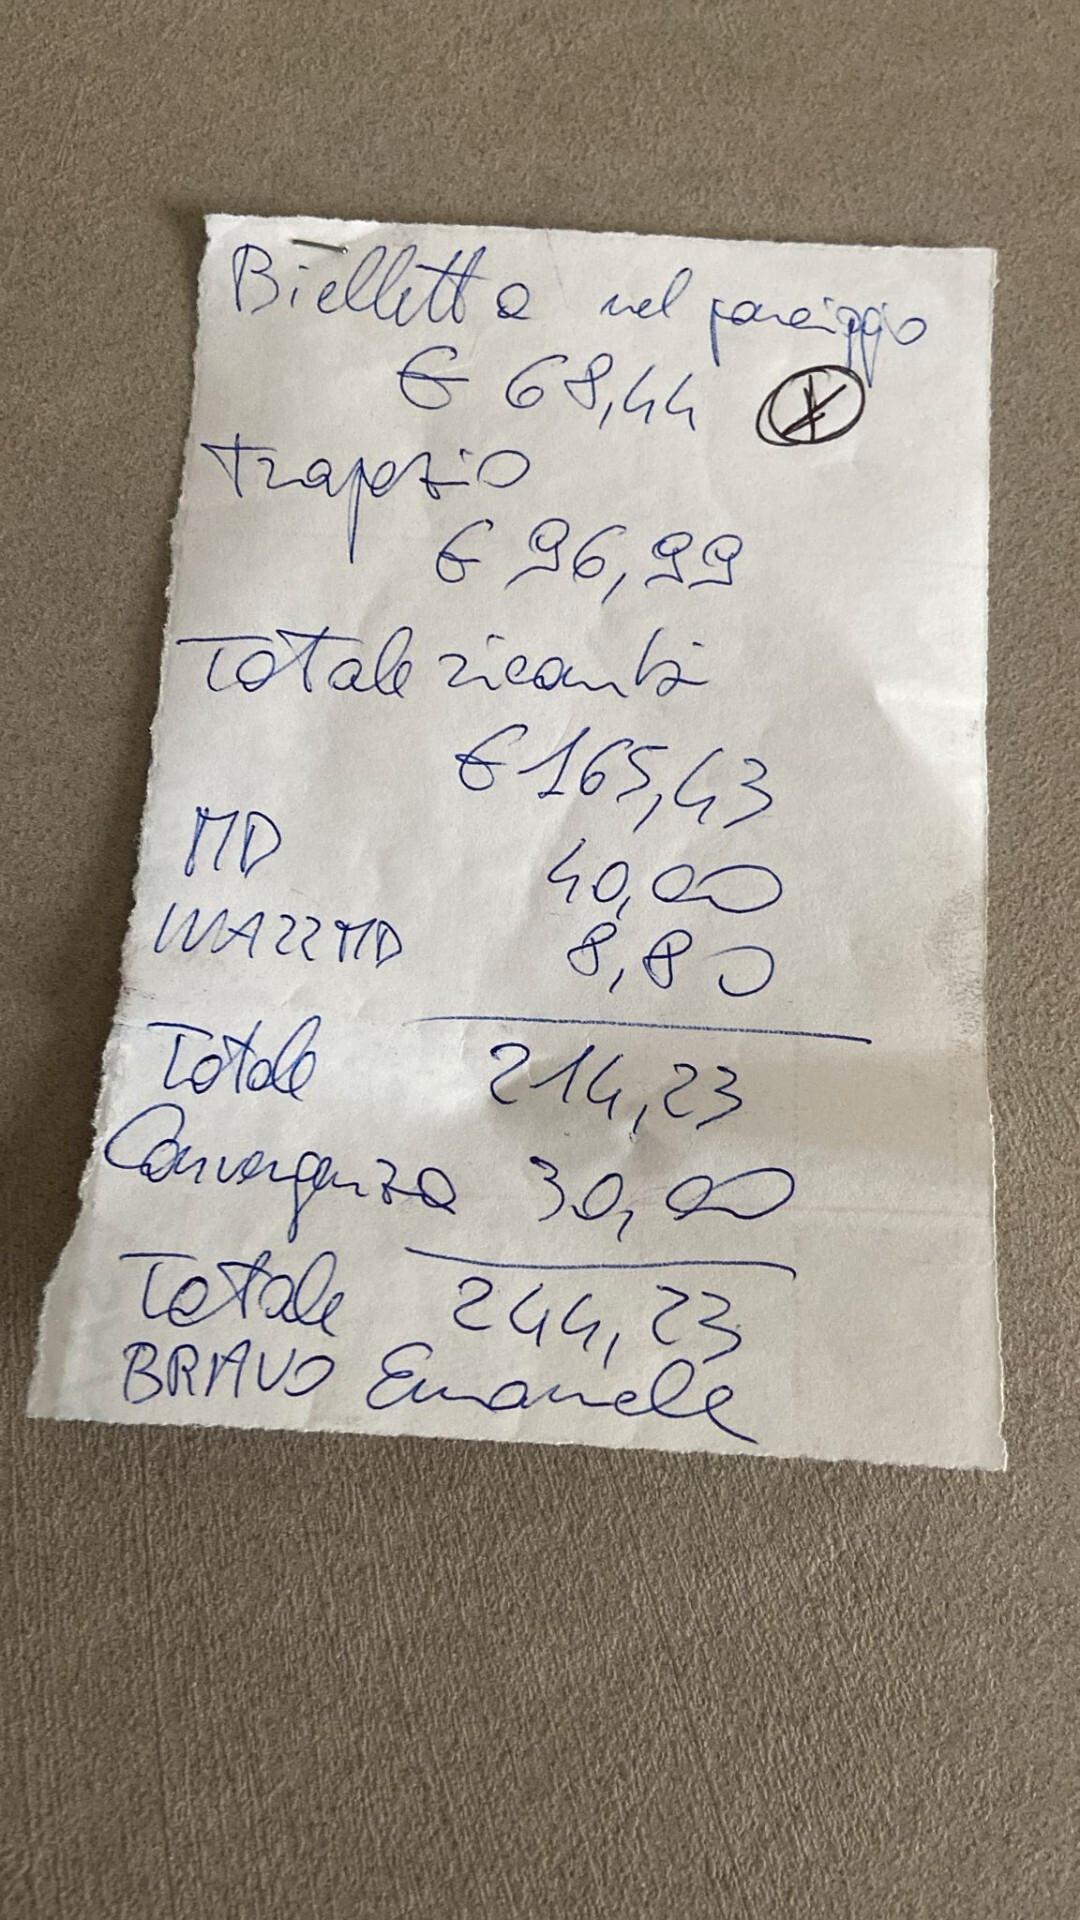 Bielletta nel pareiggio
€ 68,44
Trapezio
€ 96,99
Totale ricambi
€ 165,43
MD 40,00
8,80
Totale 214,23
Convergenza 30,00
Totale 244,23
BRAVO Emanuele